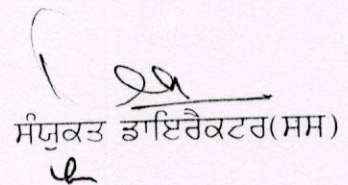 ਸੰਯੁਕਤ ਡਾਇਰੈਕਟਰ(ਸਸ)